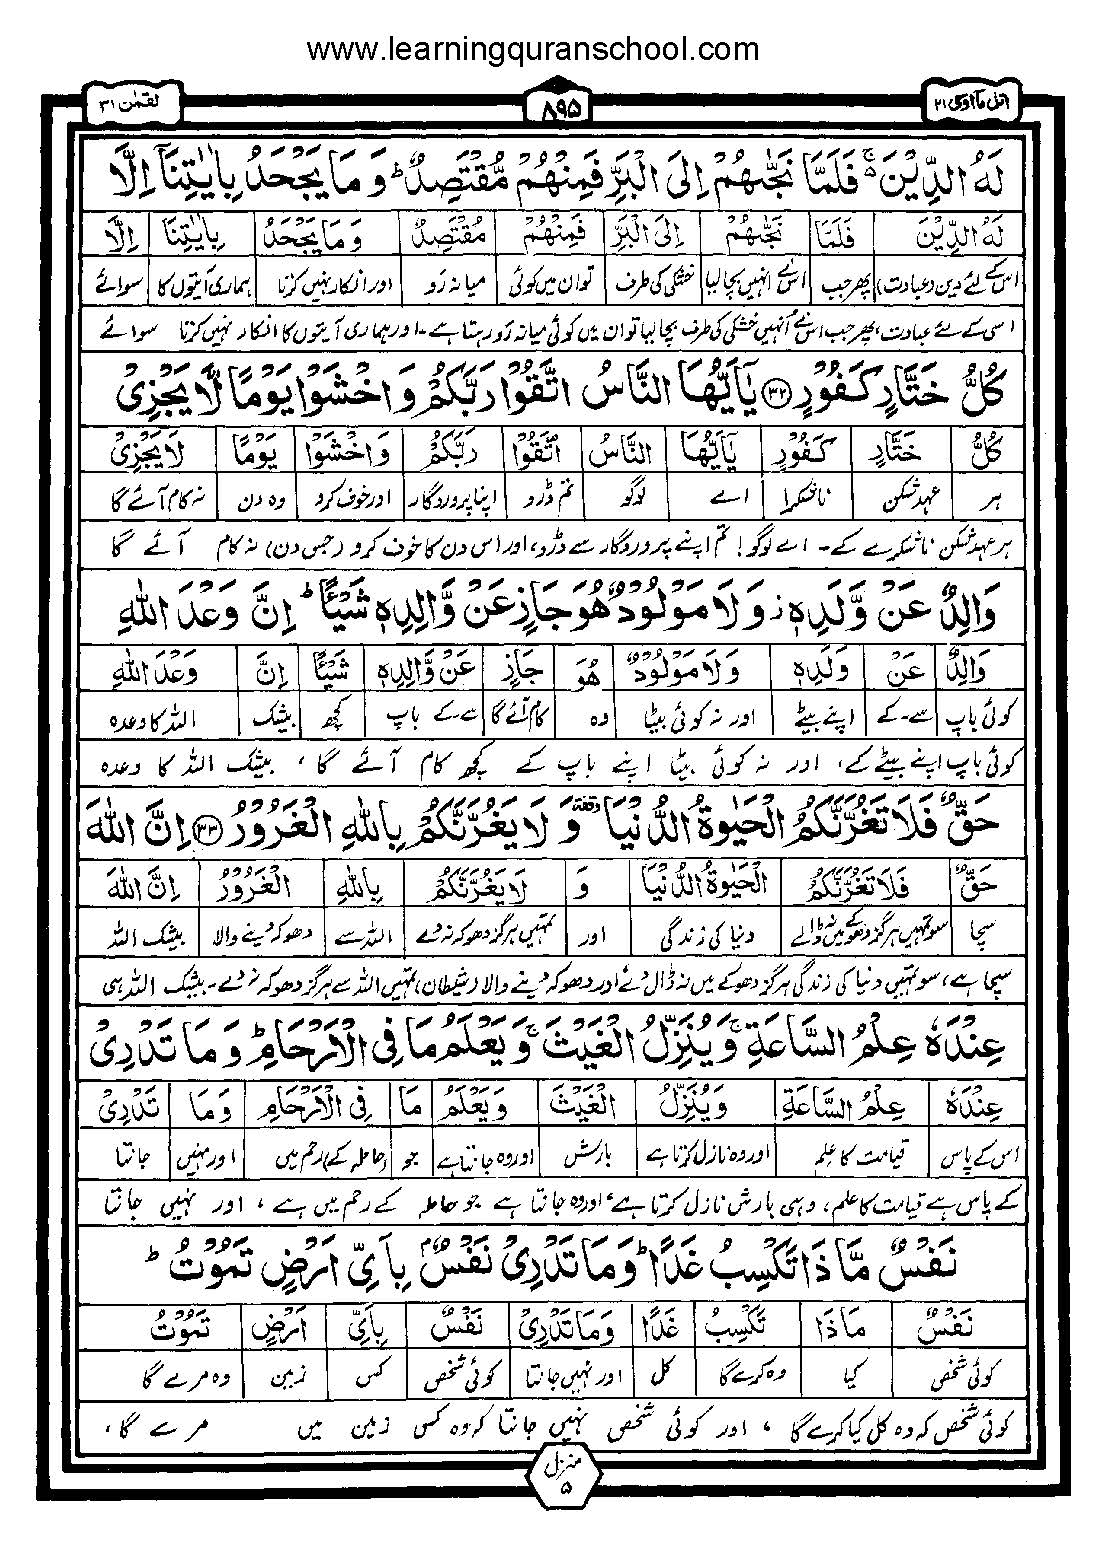 www.learningquranschool.com
اتل مآ اوحی ۲۱
۸۹۵
لقمٰن ۳۱
لَهُ الدِّيْنَ ۚ فَلَمَّا نَجّٰىهُمْ اِلَى الْبَرِّ فَمِنْهُمْ مُّقْتَصِدٌ ؕ وَ مَا يَجْحَدُ بِاٰيٰتِنَاۤ اِلَّا
لَهُ الدِّيْنَ فَلَمَّا نَجّٰىهُمْ اِلَى الْبَرِّ فَمِنْهُمْ مُّقْتَصِدٌ وَ مَا يَجْحَدُ بِاٰيٰتِنَا اِلَّا
اس کے لئے دین (عبادت) پھر جب اس نے انہیں بچا لیا خشکی کی طرف تو ان میں کوئی میانہ رَو اور انکار نہیں کرتا ہماری آیتوں کا سوائے
اسی کے لئے عبادت، پھر جب اس نے اُنہیں خشکی کی طرف بچا لیا تو ان میں کوئی میانہ رَو رہتا ہے۔ اور ہماری آیتوں کا انکار نہیں کرتا سوائے
كُلُّ خَتَّارٍ كَفُوْرٍ ﴿۳۲﴾ يٰۤاَيُّهَا النَّاسُ اتَّقُوْا رَبَّكُمْ وَ اخْشَوْا يَوْمًا لَّا يَجْزِیْ
كُلُّ خَتَّارٍ كَفُوْرٍ يٰۤاَيُّهَا النَّاسُ اتَّقُوْا رَبَّكُمْ وَ اخْشَوْا يَوْمًا لَا يَجْزِیْ
ہر عہد شکن ناشکرا اے لوگو تم ڈرو اپنا پروردگار اور خوف کرو وہ دن نہ کام آئے گا
ہر عہد شکن ناشکرے کے۔ اے لوگو! تم اپنے پروردگار سے ڈرو، اور اس دن کا خوف کرو (جس دن) نہ کام آئے گا
وَالِدٌ عَنْ وَّلَدِهٖ ؗ وَ لَا مَوْلُوْدٌ هُوَ جَازٍ عَنْ وَّالِدِهٖ شَيْـًٔا ؕ اِنَّ وَعْدَ اللّٰهِ
وَالِدٌ عَنْ وَلَدِهٖ وَ لَا مَوْلُوْدٌ هُوَ جَازٍ عَنْ وَّالِدِهٖ شَيْـًٔا اِنَّ وَعْدَ اللّٰهِ
کوئی باپ سے۔کے اپنے بیٹے اور نہ کوئی بیٹا وہ کام آئے گا سے۔کے باپ کچھ بیشک اللہ کا وعدہ
کوئی باپ اپنے بیٹے کے، اور نہ کوئی بیٹا اپنے باپ کے کچھ کام آئے گا، بیشک اللہ کا وعدہ
حَقٌّ فَلَا تَغُرَّنَّكُمُ الْحَيٰوةُ الدُّنْيَا وقفة وَ لَا يَغُرَّنَّكُمْ بِاللّٰهِ الْغَرُوْرُ ﴿۳۳﴾ اِنَّ اللّٰهَ
حَقٌّ فَلَا تَغُرَّنَّكُمُ الْحَيٰوةُ الدُّنْيَا وَ لَا يَغُرَّنَّكُمْ بِاللّٰهِ الْغَرُوْرُ اِنَّ اللّٰهَ
سچا سو تمہیں ہرگز دھوکے میں نہ ڈالے دنیا کی زندگی اور تمہیں ہرگز دھوکہ نہ دے اللہ سے دھوکہ دینے والا بیشک اللہ
سچا ہے، سو تمہیں دنیا کی زندگی ہرگز دھوکے میں نہ ڈال دے اور دھوکہ دینے والا (شیطان) تمہیں اللہ سے ہرگز دھوکہ نہ دے۔ بیشک اللہ ہی
عِنْدَهٗ عِلْمُ السَّاعَةِ ۚ وَ يُنَزِّلُ الْغَيْثَ ۚ وَ يَعْلَمُ مَا فِی الْاَرْحَامِ ؕ وَ مَا تَدْرِیْ
عِنْدَهٗ عِلْمُ السَّاعَةِ وَ يُنَزِّلُ الْغَيْثَ وَ يَعْلَمُ مَا فِی الْاَرْحَامِ وَ مَا تَدْرِیْ
اس کے پاس قیامت کا علم اور وہ نازل کرتا ہے بارش اور وہ جانتا ہے جو (حاملہ کے) رحم میں اور نہیں جانتا
کے پاس ہے قیامت کا علم، وہی بارش نازل کرتا ہے، اور وہ جانتا ہے جو حاملہ کے رحم میں ہے، اور نہیں جانتا
نَفْسٌ مَّا ذَا تَكْسِبُ غَدًا ؕ وَ مَا تَدْرِیْ نَفْسٌۢ بِاَیِّ اَرْضٍ تَمُوْتُ ؕ
نَفْسٌ مَاذَا تَكْسِبُ غَدًا وَ مَا تَدْرِیْ نَفْسٌ بِاَیِّ اَرْضٍ تَمُوْتُ
کوئی شخص کیا وہ کرے گا کل اور نہیں جانتا کوئی شخص کس زمین وہ مرے گا
کوئی شخص کہ وہ کل کیا کرے گا، اور کوئی شخص نہیں جانتا کہ وہ کس زمین میں مرے گا،
منزل
۵